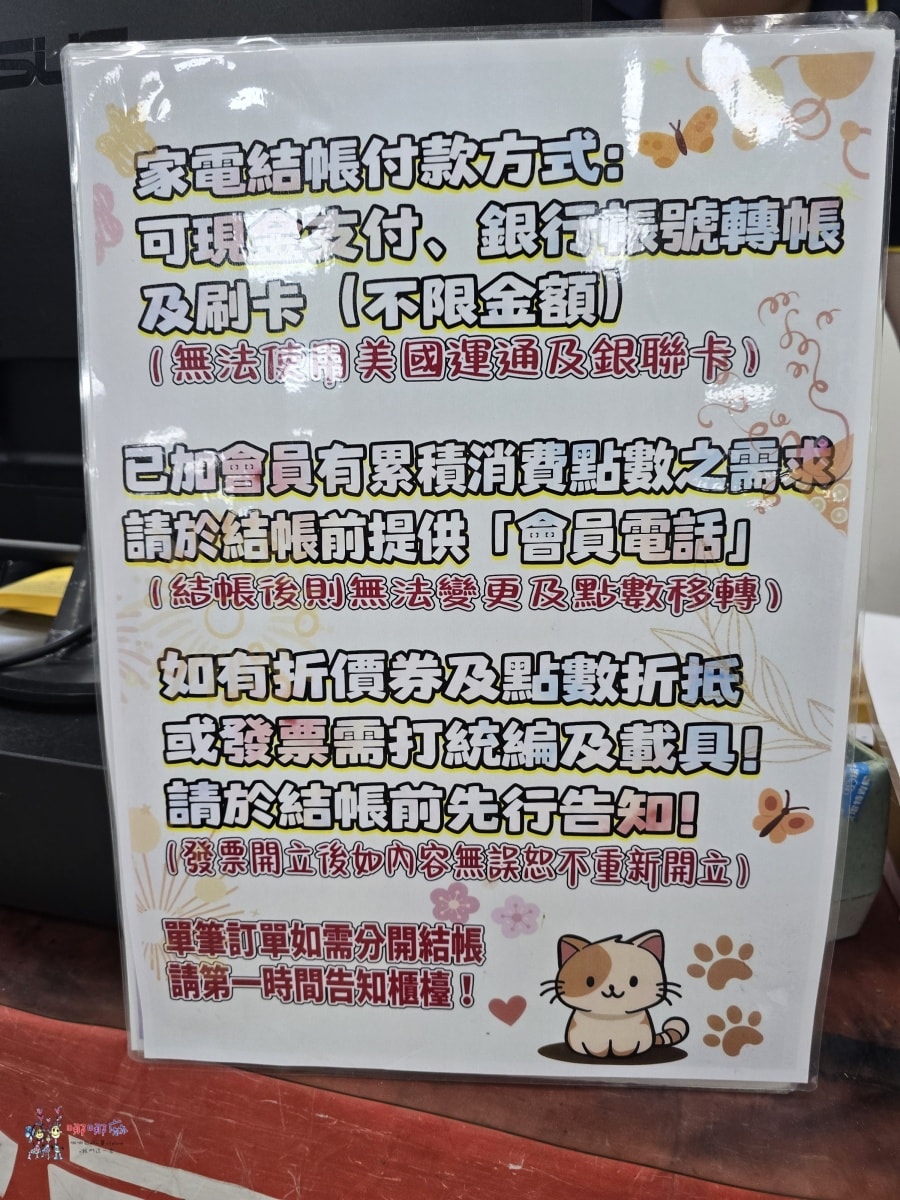 家電結帳付款方式:
可現金支付、銀行帳號轉帳
及刷卡（不限金額）
（無法使用美國運通及銀聯卡）
已加會員有累積消費點數之需求
請於結帳前提供「會員電話」
（結帳後則無法變更及點數移轉）
如有折價券及點數折抵
或發票需打統編及載具!
請於結帳前先行告知!
（發票開立後如內容無誤恕不重新開立）
單筆訂單如需分開結帳
請第一時間告知櫃檯！